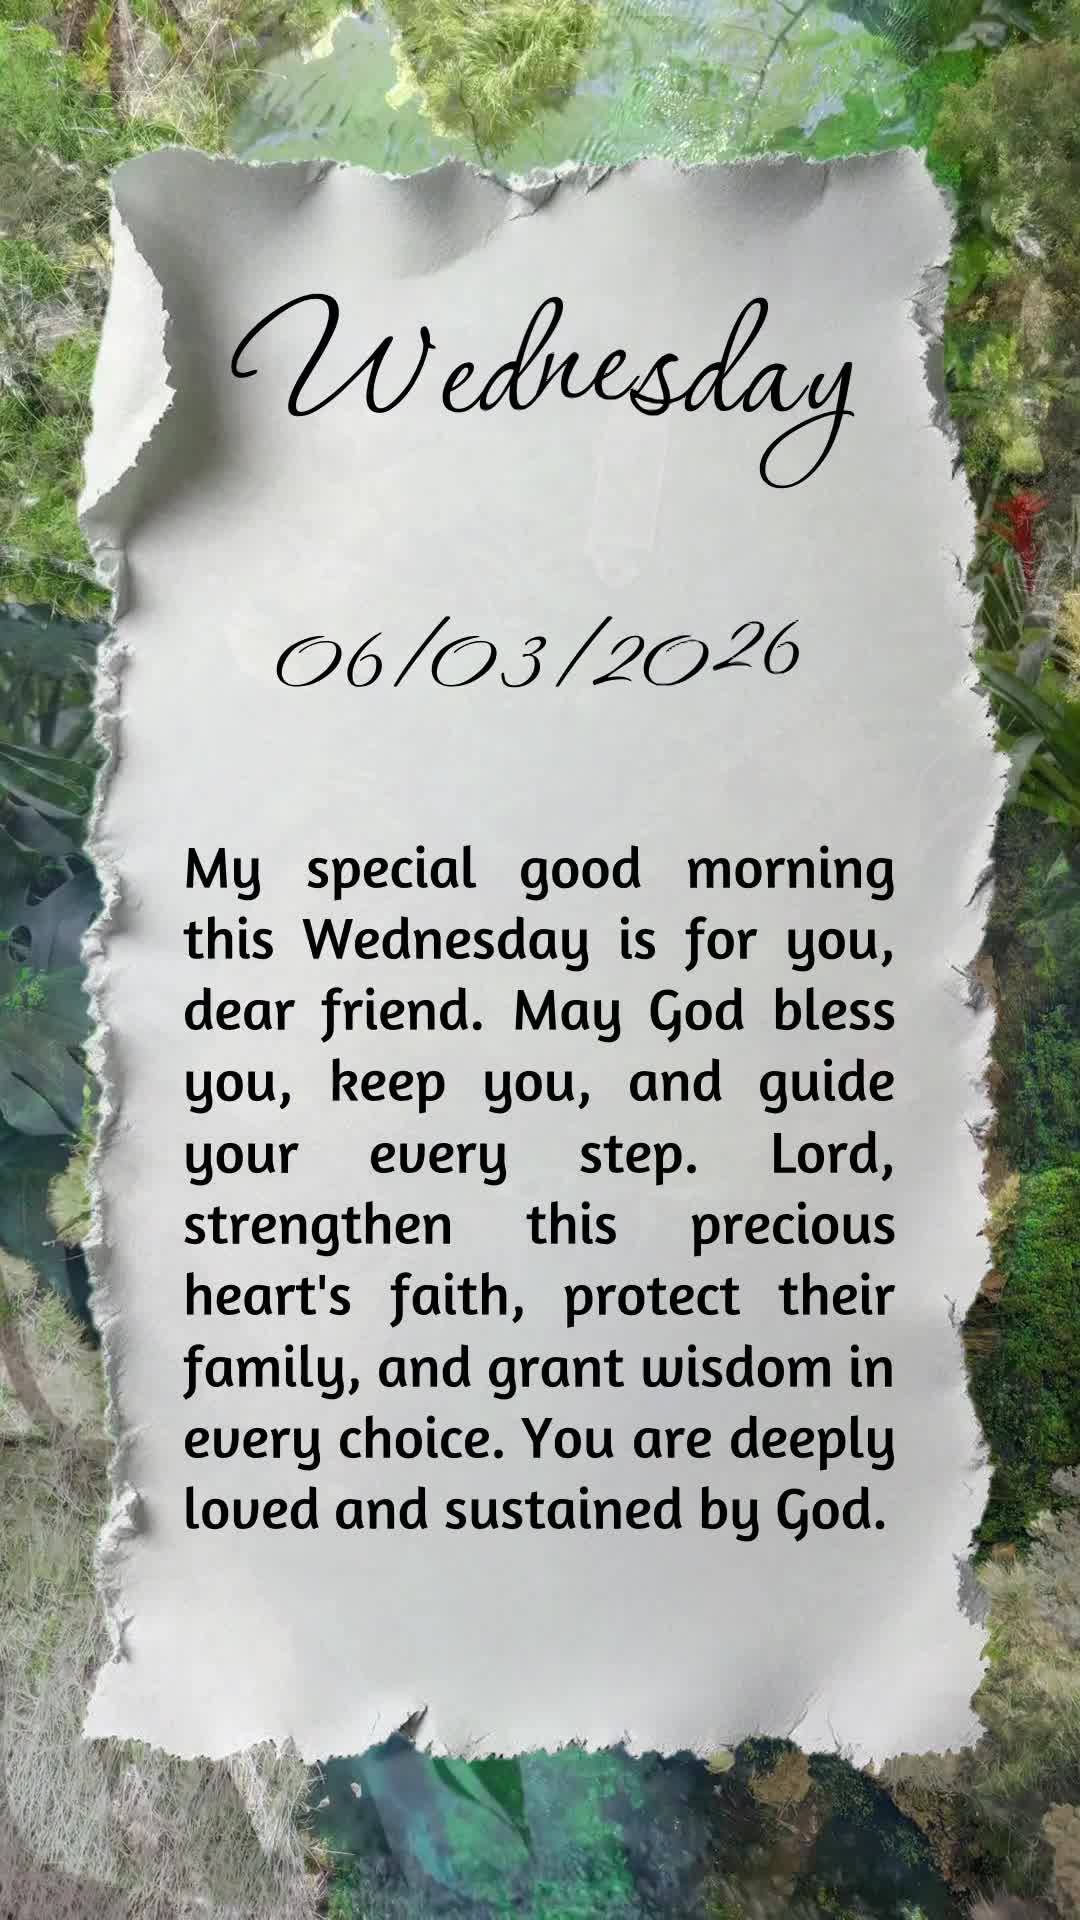 Wednesday
06/03/2026
My special good morning
this Wednesday is for you,
dear friend. May God bless
you, keep you, and guide
your every step. Lord,
strengthen this precious
heart's faith, protect their
family, and grant wisdom in
every choice. You are deeply
loved and sustained by God.